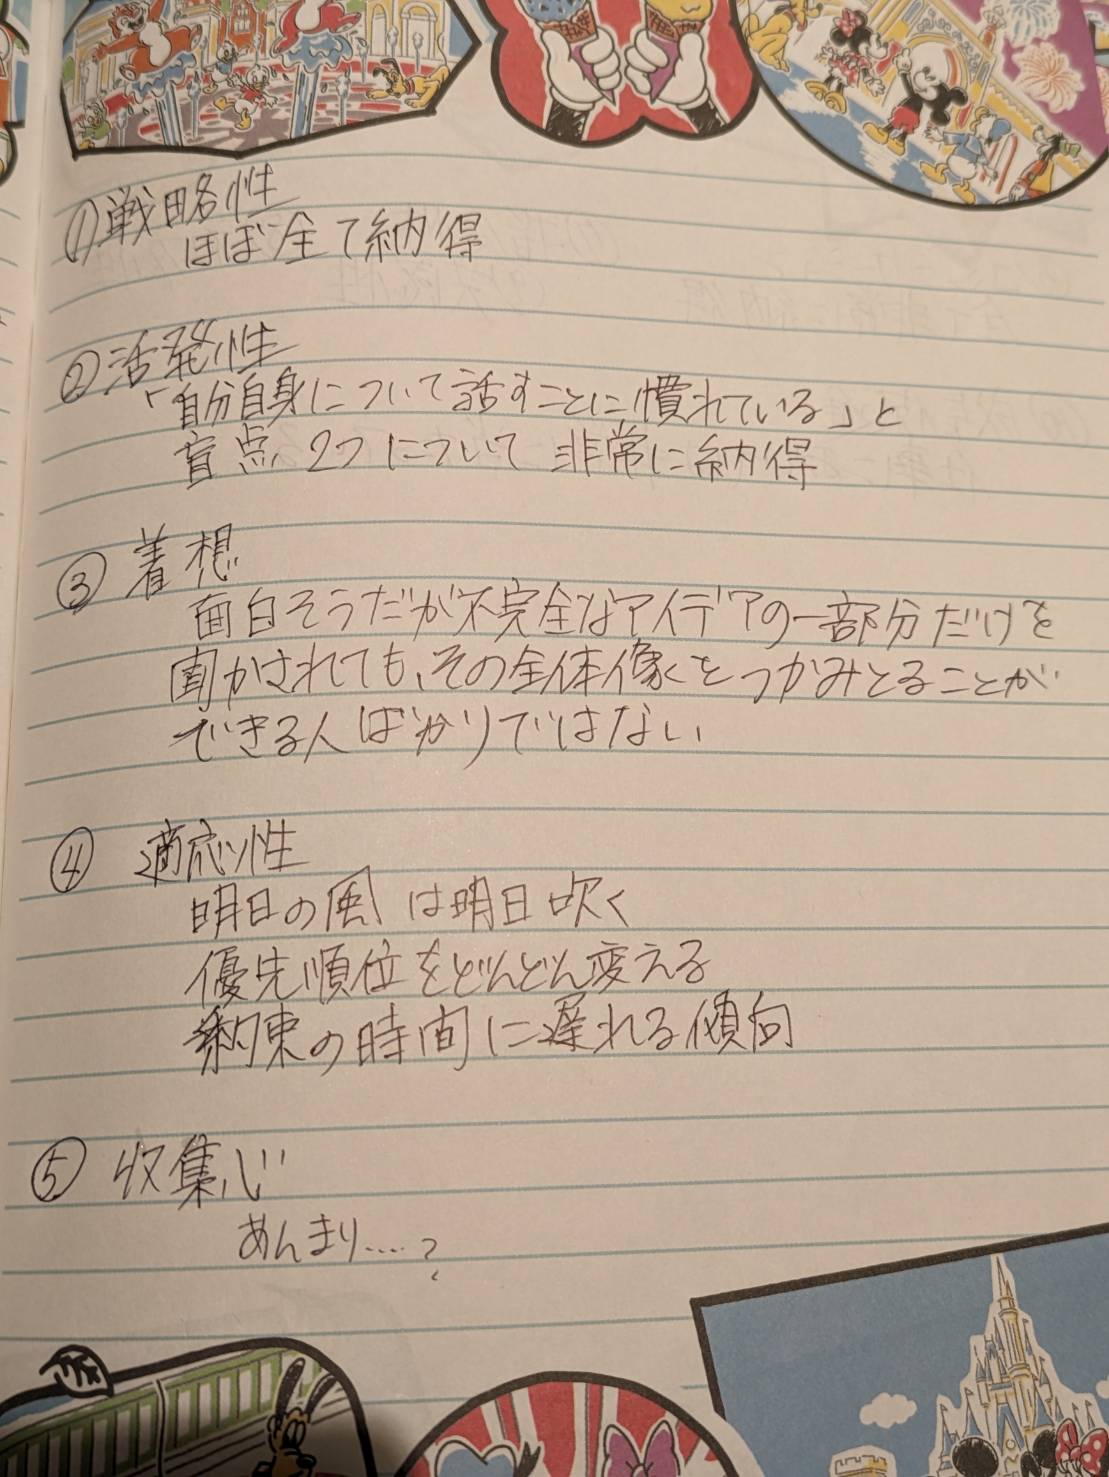 ①戦略性
ほぼ全て納得
②活発性
「自分自身について話すことに慣れている」と
盲点2つについて 非常に納得
③ 着想
面白そうだが不完全なアイデアの一部分だけを
聞かされても、その全体像をつかみとることが
できる人ばかりではない
④ 適応性
明日の風は明日吹く
優先順位をどんどん変える
約束の時間に遅れる傾向
⑤ 収集心
あんまり....?